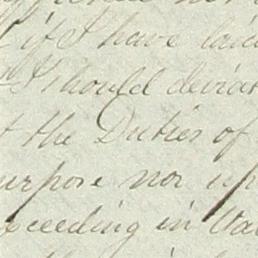 if I have laid
I should deviat
the Duties of
urpose nor up
ceeding in Va